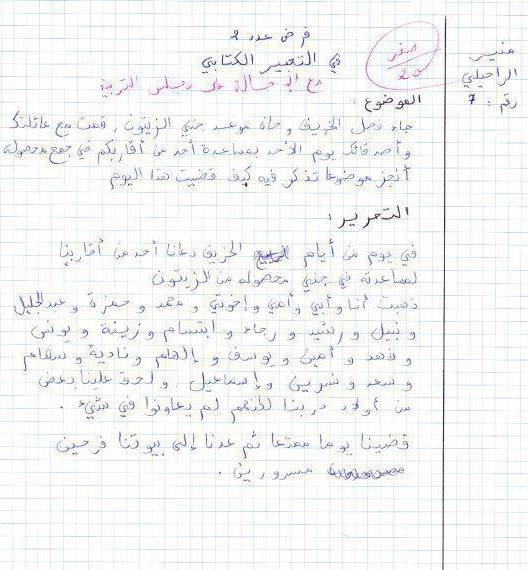 منير
الراحيلي
رقم : 7
فرض عدد 2
في التعبير الكتابي
صفر
20
مع الإحالة على مجلس التربية
الموضوع :
جاء فصل الخريف وحان موعد جني الزيتون، قمت مع عائلتك
وأصدقائك يوم الأحد بمساعدة أحد من أقاربكم في جمع محصوله
أنجز موضوعا تذكر فيه كيف قضيت هذا اليوم
التحرير :
في يوم من أيام الخريف دعانا أحد من أقاربنا
لمساعدته في جني محصوله من الزيتون
ذهبت أنا وأبي وأمي وإخوتي و محمد و حمزة و عبد الجليل
و نبيل و رشيد و رجاء و ابتسام و زينة و يونس
و فهد و أمين و يوسف و إلهام و نادية و سهام
و سعد و شرين و إسماعيل . و لحق علينا بعض
من أولاد دربنا لكنهم لم يعاونوا في شيء .
قضينا يوما ممتعا ثم عدنا إلى بيوتنا فرحين
مسرورين .